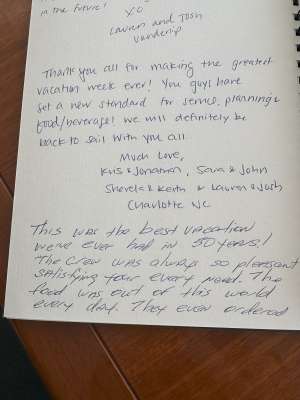 in the future!
XO
Lauren and Josh
Vanderip
Thank you all for making the greatest
vacation week ever! You guys have
set a new standard for service, planning &
food/beverage! We will definitely be
back to sail with you all
Much Love,
Kris & Jonathan, Sara & John
& Keith & Lauren & Josh
Charlotte NC
This was the best vacation
we've ever had in 50 years!
The crew was always so pleasant
satisfying your every need. The
food was out of this world
every day. They even ordered